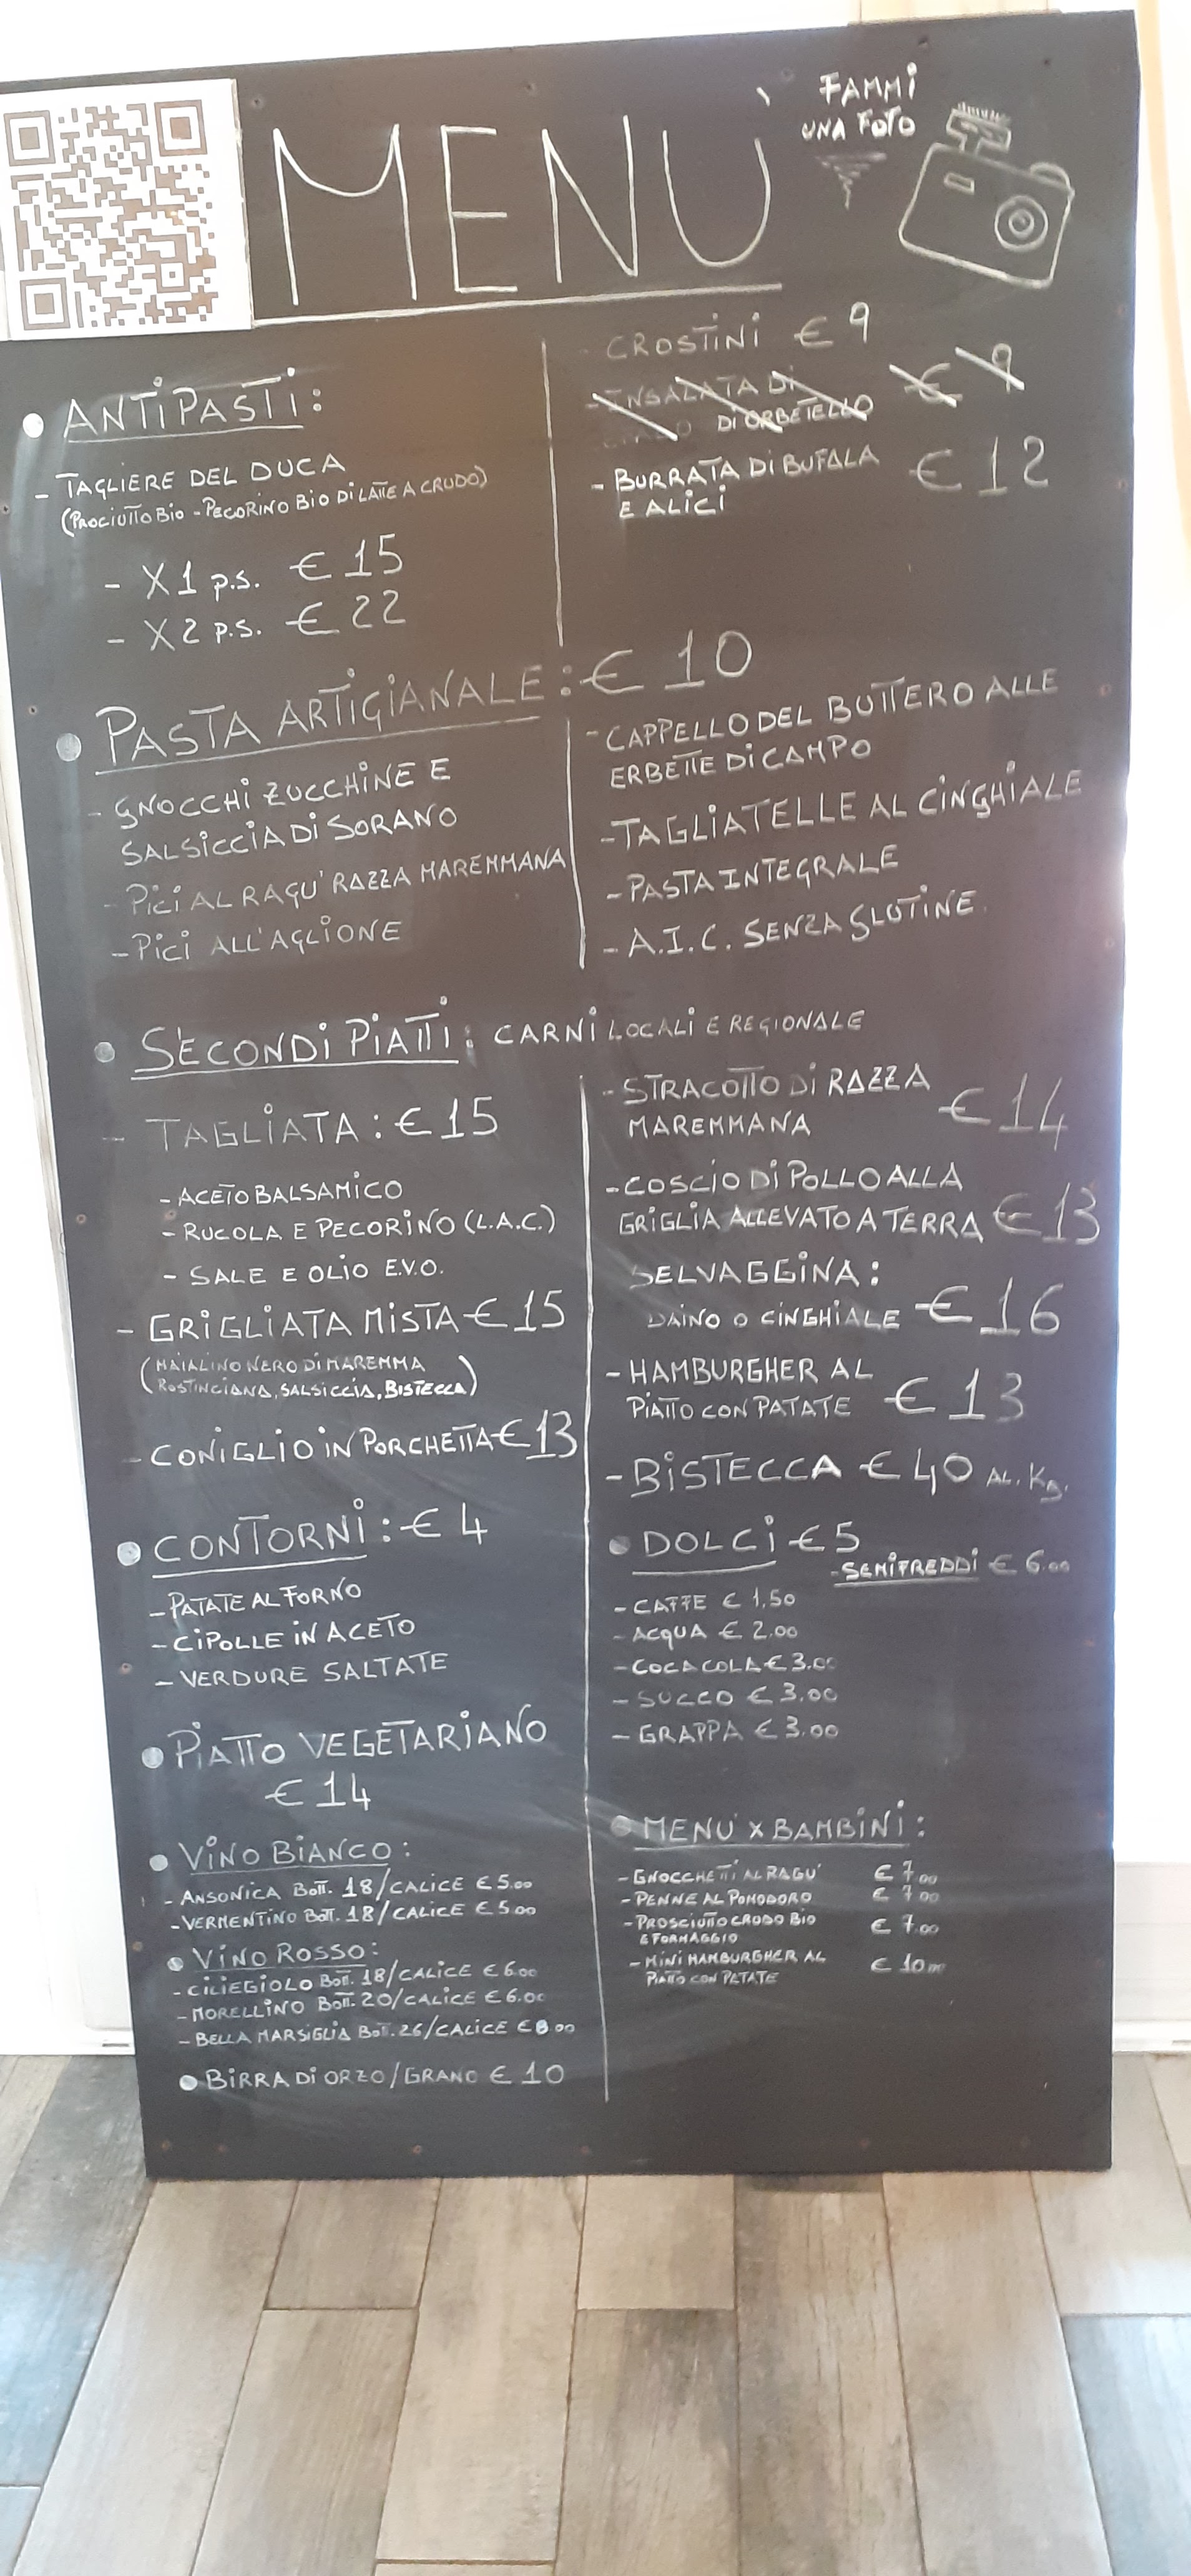 MENÙ
FAMMI
UNA FOTO
ANTIPASTI:
- TAGLIERE DEL DUCA
(PROCIUTTO BIO - PECORINO BIO DI LATTE A CRUDO)
- X1 p.s. € 15
- X2 p.s. € 22
- CROSTINI € 9
- INSALATA DI € 9
DI ORBETELLO
- BURRATA DI BUFALA € 12
E ALICI
PASTA ARTIGIANALE: € 10
- GNOCCHI ZUCCHINE E
SALSICCIA DI SORANO
- PICI AL RAGU' RAZZA MAREMMANA
- PICI ALL'AGLIONE
- CAPPELLO DEL BUTTERO ALLE
ERBETTE DI CAMPO
- TAGLIATELLE AL CINGHIALE
- PASTA INTEGRALE
- A.I.C. SENZA GLUTINE
SECONDI PIATTI: CARNI LOCALI E REGIONALE
- TAGLIATA: € 15
- ACETO BALSAMICO
- RUCOLA E PECORINO (L.A.C.)
- SALE E OLIO E.V.O.
- GRIGLIATA MISTA € 15
(MAIALINO NERO DI MAREMMA
ROSTINCIANA, SALSICCIA, BISTECCA)
- CONIGLIO IN PORCHETTA € 13
- STRACOTTO DI RAZZA
MAREMMANA € 14
- COSCIO DI POLLO ALLA
GRIGLIA ALLEVATO A TERRA € 13
SELVAGGINA:
DAINO O CINGHIALE € 16
- HAMBURGHER AL
PIATTO CON PATATE € 13
- BISTECCA € 40 AL. Kg.
CONTORNI: € 4
- PATATE AL FORNO
- CIPOLLE IN ACETO
- VERDURE SALTATE
PIATTO VEGETARIANO
€ 14
VINO BIANCO:
- ANSONICA BOTT. 18/CALICE € 5.00
- VERMENTINO BOTT. 18/CALICE € 5.00
VINO ROSSO:
- CILIEGIOLO BOTT. 18/CALICE € 6.00
- MORELLINO BOTT. 20/CALICE € 6.00
- BELLA MARSIGLIA BOTT. 26/CALICE € 8.00
BIRRA DI ORZO/GRANO € 10
DOLCI € 5
- SEMIFREDDI € 6.00
- CAFFE € 1,50
- ACQUA € 2.00
- COCA COLA € 3.00
- SUCCO € 3.00
- GRAPPA € 3.00
MENU' X BAMBINI:
- GNOCCHETTI AL RAGU' € 7.00
- PENNE AL POMODORO € 7.00
- PROSCIUTTO CRUDO BIO € 7.00
E FORMAGGIO
- MINI HAMBURGHER AL € 10.00
PIATTO CON PETATE